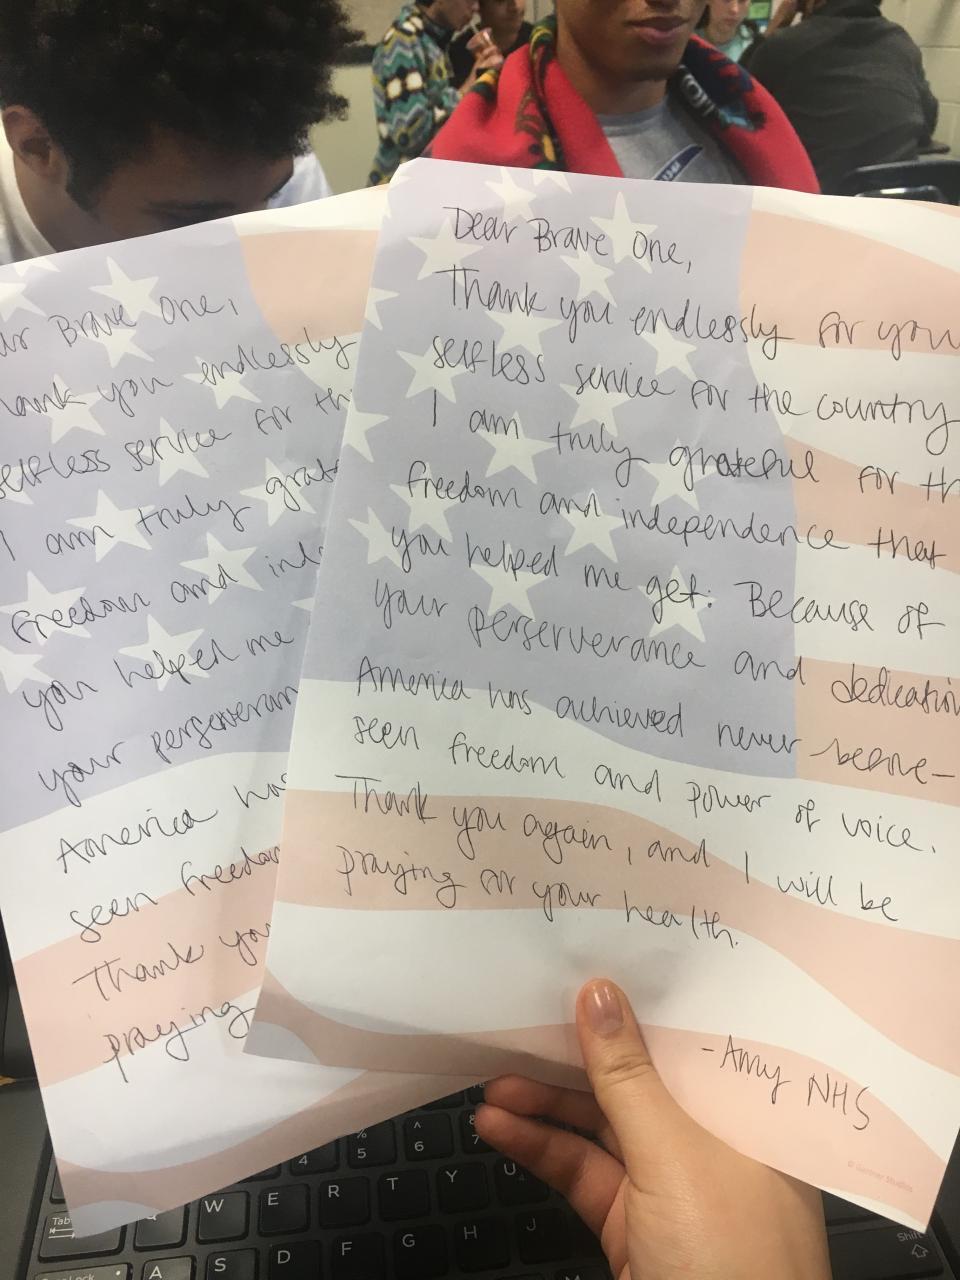 Dear Brave One,
Thank you endlessly for you
selfless service for the country
I am truly grateful for th
freedom and independence that
you helped me get. Because of
your perserverance and dedication
America has achieved never before-
seen freedom and power of voice.
Thank you again, and I will be
praying for your health.
-Amy NHS
© Gartner Studios
ar Brave One,
hank you endlessly
selfless service for thi
I am truly grat
freedom and ind
you helped me
your perserveran
America has
seen freedom
Thank you
praying
% 5
^ 6
& 7
4
Tab
W E R T Y U
A S D F G H J
Shift